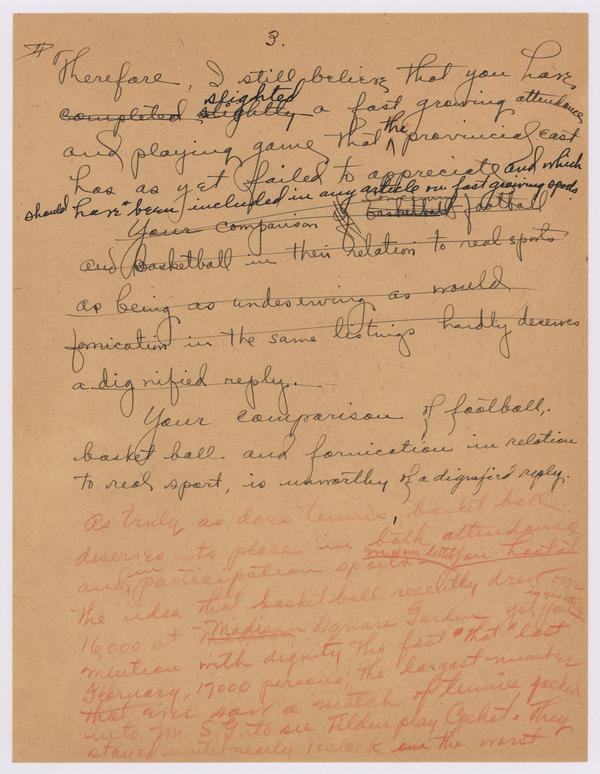 3.
Therefore, I still believe that you have
completed slightly slighted a fast growing attendance
and playing game that the provincial east
has as yet failed to appreciate and which
should have been included in any article on fast growing sports
Your comparison of basketball football
and basketball in their relation to real sports
as being as undeserving as would
fornication in the same listings hardly deserves
a dignified reply.
Your comparison of football,
basket ball and fornication in relation
to real sport, is unworthy of a dignified reply.
As truly as does tennis, basket ball
deserves its place in both attendance
and in participation sports. You hooted at
the idea that basket ball recently drew over
16,000 at Madison Square Garden yet you
mention with dignity the fact "that" last
February, 17000 persons, the largest number
that ever saw a match of tennis packed
into M. S. G. to see Tilden play Cochet. They
stayed until nearly 1 o'clock the worst